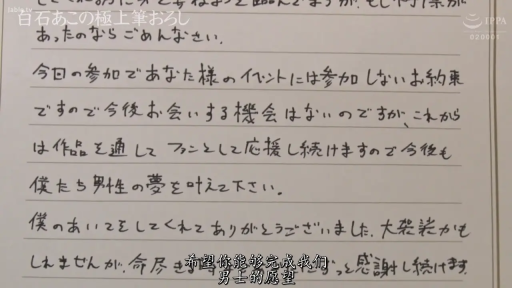 白石あこの極上筆おろし
IPPA
020001
あったのならごめんなさい。
今回の参加であなた様のイベントには参加しないお約束
ですので今後お会いする機会はないのですが、これから
は作品を通してファンとして応援し続けますので今後も
僕たち男性の夢を叶えて下さい。
僕のあいてをしてくれてありがとうございました。大袈裟かも
しれませんが、命尽き ずっと感謝し続けます
希望你能够完成我们
男士的愿望